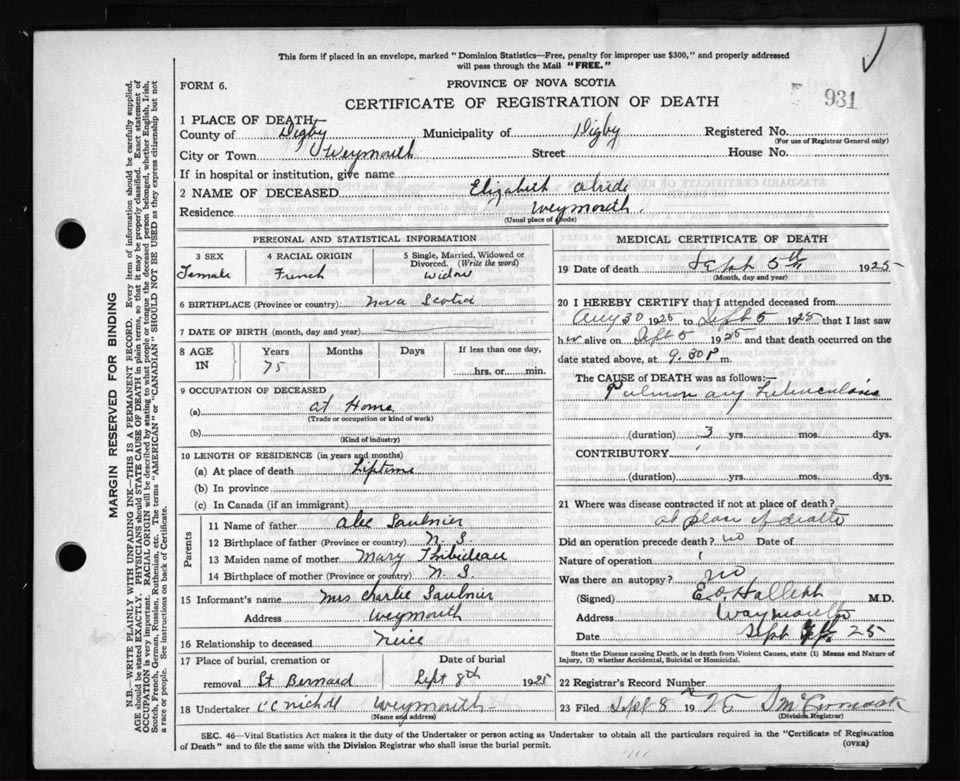 This form if placed in an envelope, marked "Dominion Statistics—Free, penalty for improper use $300," and properly addressed
will pass through the Mail "FREE."
FORM 6.
PROVINCE OF NOVA SCOTIA
CERTIFICATE OF REGISTRATION OF DEATH
931
1 PLACE OF DEATH—
County of Digby Municipality of Digby Registered No.
(For use of Registrar General only)
City or Town Weymouth Street House No.
If in hospital or institution, give name
2 NAME OF DECEASED Elizabeth
Residence Weymouth
(Usual place of abode)
PERSONAL AND STATISTICAL INFORMATION
3 SEX
Female
4 RACIAL ORIGIN
French
5 Single, Married, Widowed or
Divorced. (Write the word)
Widow
6 BIRTHPLACE (Province or country) Nova Scotia
7 DATE OF BIRTH (month, day and year)
8 AGE
IN
Years
75
Months
Days
If less than one day,
hrs. or min.
9 OCCUPATION OF DECEASED
(a) at Home
(Trade or occupation or kind of work)
(b)
(Kind of industry)
10 LENGTH OF RESIDENCE (in years and months)
(a) At place of death Liftime
(b) In province
(c) In Canada (if an immigrant)
Parents
11 Name of father Alec Saulnier
12 Birthplace of father (Province or country) N. S
13 Maiden name of mother Mary Thibideau
14 Birthplace of mother (Province or country) N. S
15 Informant's name Mrs Charlie Saulnier
Address Weymouth
16 Relationship to deceased Neice
17 Place of burial, cremation or
removal St Bernard
Date of burial
Sept 8th 1925
18 Undertaker Weymouth
(Name and address)
MEDICAL CERTIFICATE OF DEATH
19 Date of death Sept 5th 1925
(Month, day and year)
20 I HEREBY CERTIFY that I attended deceased from
Aug 30 1925 to Sept 5 1925 that I last saw
her alive on Sept 5 1925 and that death occurred on the
date stated above, at 9.30 P m.
The CAUSE of DEATH was as follows:—
Pulmonary Tuberculosis
(duration) 3 yrs. mos. dys.
CONTRIBUTORY
(duration) yrs. mos. dys.
21 Where was disease contracted if not at place of death?
at place of death
Did an operation precede death? no Date of
Nature of operation
Was there an autopsy? no
(Signed) M.D.
Address Weymouth
Date Sept 25
State the Disease causing Death, or in death from Violent Causes, state (1) Means and Nature of
Injury, (2) whether Accidental, Suicidal or Homicidal.
22 Registrar's Record Number
23 Filed Sept 8 1925
(Division Registrar)
SEC. 46—Vital Statistics Act makes it the duty of the Undertaker or person acting as Undertaker to obtain all the particulars required in the "Certificate of Registration
of Death" and to file the same with the Division Registrar who shall issue the burial permit.
(OVER)
MARGIN RESERVED FOR BINDING
N.B.—WRITE PLAINLY WITH UNFADING INK—THIS IS A PERMANENT RECORD. Every item of information should be carefully supplied.
AGE should be stated EXACTLY. PHYSICIANS should STATE CAUSE OF DEATH in plain terms, so that it may be properly classified. Exact statement of
OCCUPATION is very important. RACIAL ORIGIN will be described by stating to what people or tongue the deceased person belonged, whether English, Irish,
Scotch, French, German, Russian, Ruthenian, etc. The terms "AMERICAN" or "CANADIAN" SHOULD NOT BE USED as they express citizenship but not
a race or people. See instructions on back of Certificate.